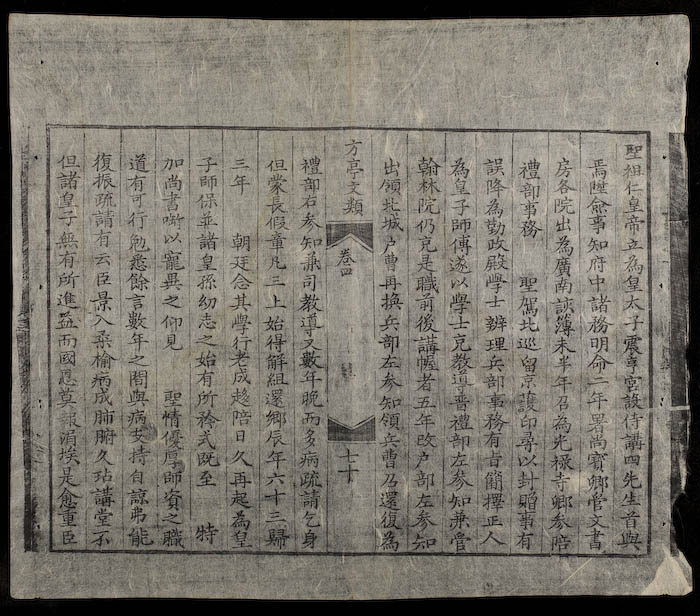 聖祖仁皇帝立為皇太子震亨宮設侍講四先生首與
焉陞僉事知府中諸務明命二年署尚寶卿管文書
房各院出為廣南該簿未半年召為光禄寺卿參陪
禮部事務 聖駕北巡留京護印尋以封贈事有
誤降為勤政殿學士辦理兵部事務有旨簡擇正人
為皇子師傅遂以學士充教導晋禮部左參知兼管
翰林院仍充是職前後講幄者五年改户部左參知
出領北城户曹再換兵部左參知領兵曹召還復為
方亭文類 卷四 七十
禮部右參知兼司教導又數年晚而多病疏請乞身
但蒙長假章凡三上始得解組還鄉辰年六十三歸
三年 朝廷念其學行老成趨陪日久再起為皇
子師保並諸皇孫幼志之始有所矜式既至 特
加尚書銜以寵異之仰見 聖情優厚師資之職
道有可行勉悉餘言數年之間與病支持自諒弗能
復振疏請有云臣景入桑榆病成肺腑久玷講堂不
但諸皇子無有所進益而國恩莫報涓埃是愈重臣